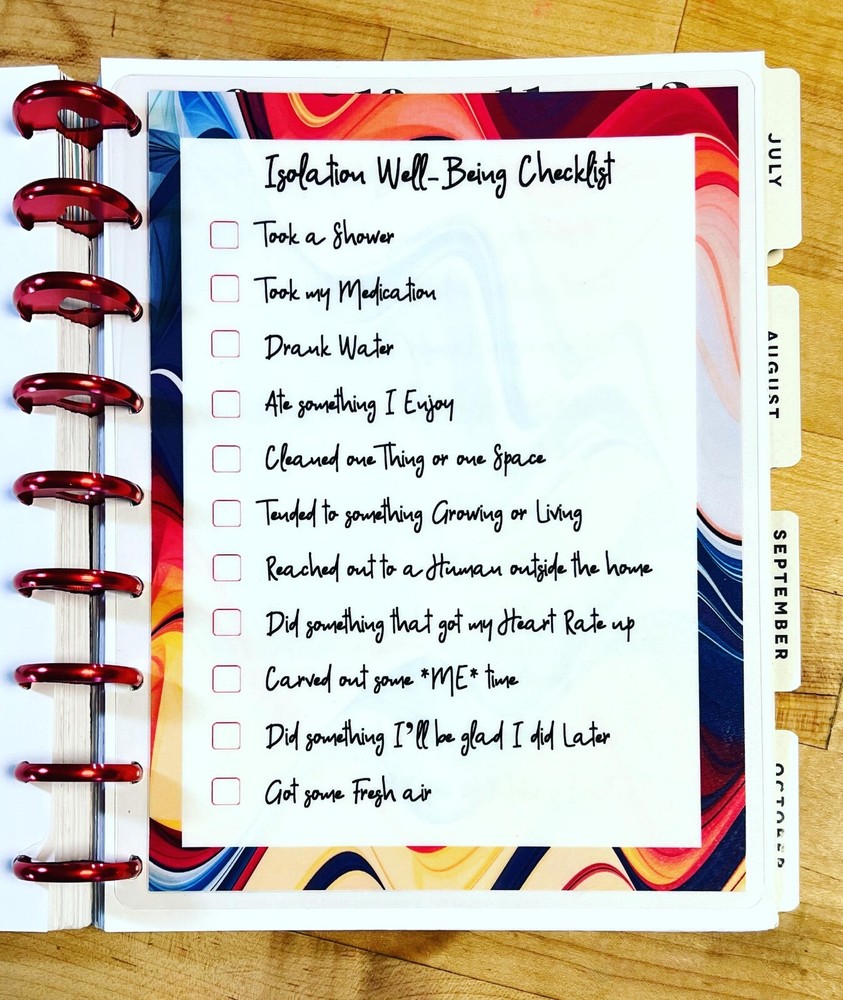 Isolation Well-Being Checklist
Took a Shower
Took my Medication
Drank Water
Ate something I Enjoy
Cleaned one Thing or one Space
Tended to something Growing or Living
Reached out to a Human outside the home
Did something that got my Heart Rate up
Carved out some *ME* time
Did something I'll be glad I did Later
Got some Fresh air
JULY
AUGUST
SEPTEMBER
OCTOBER